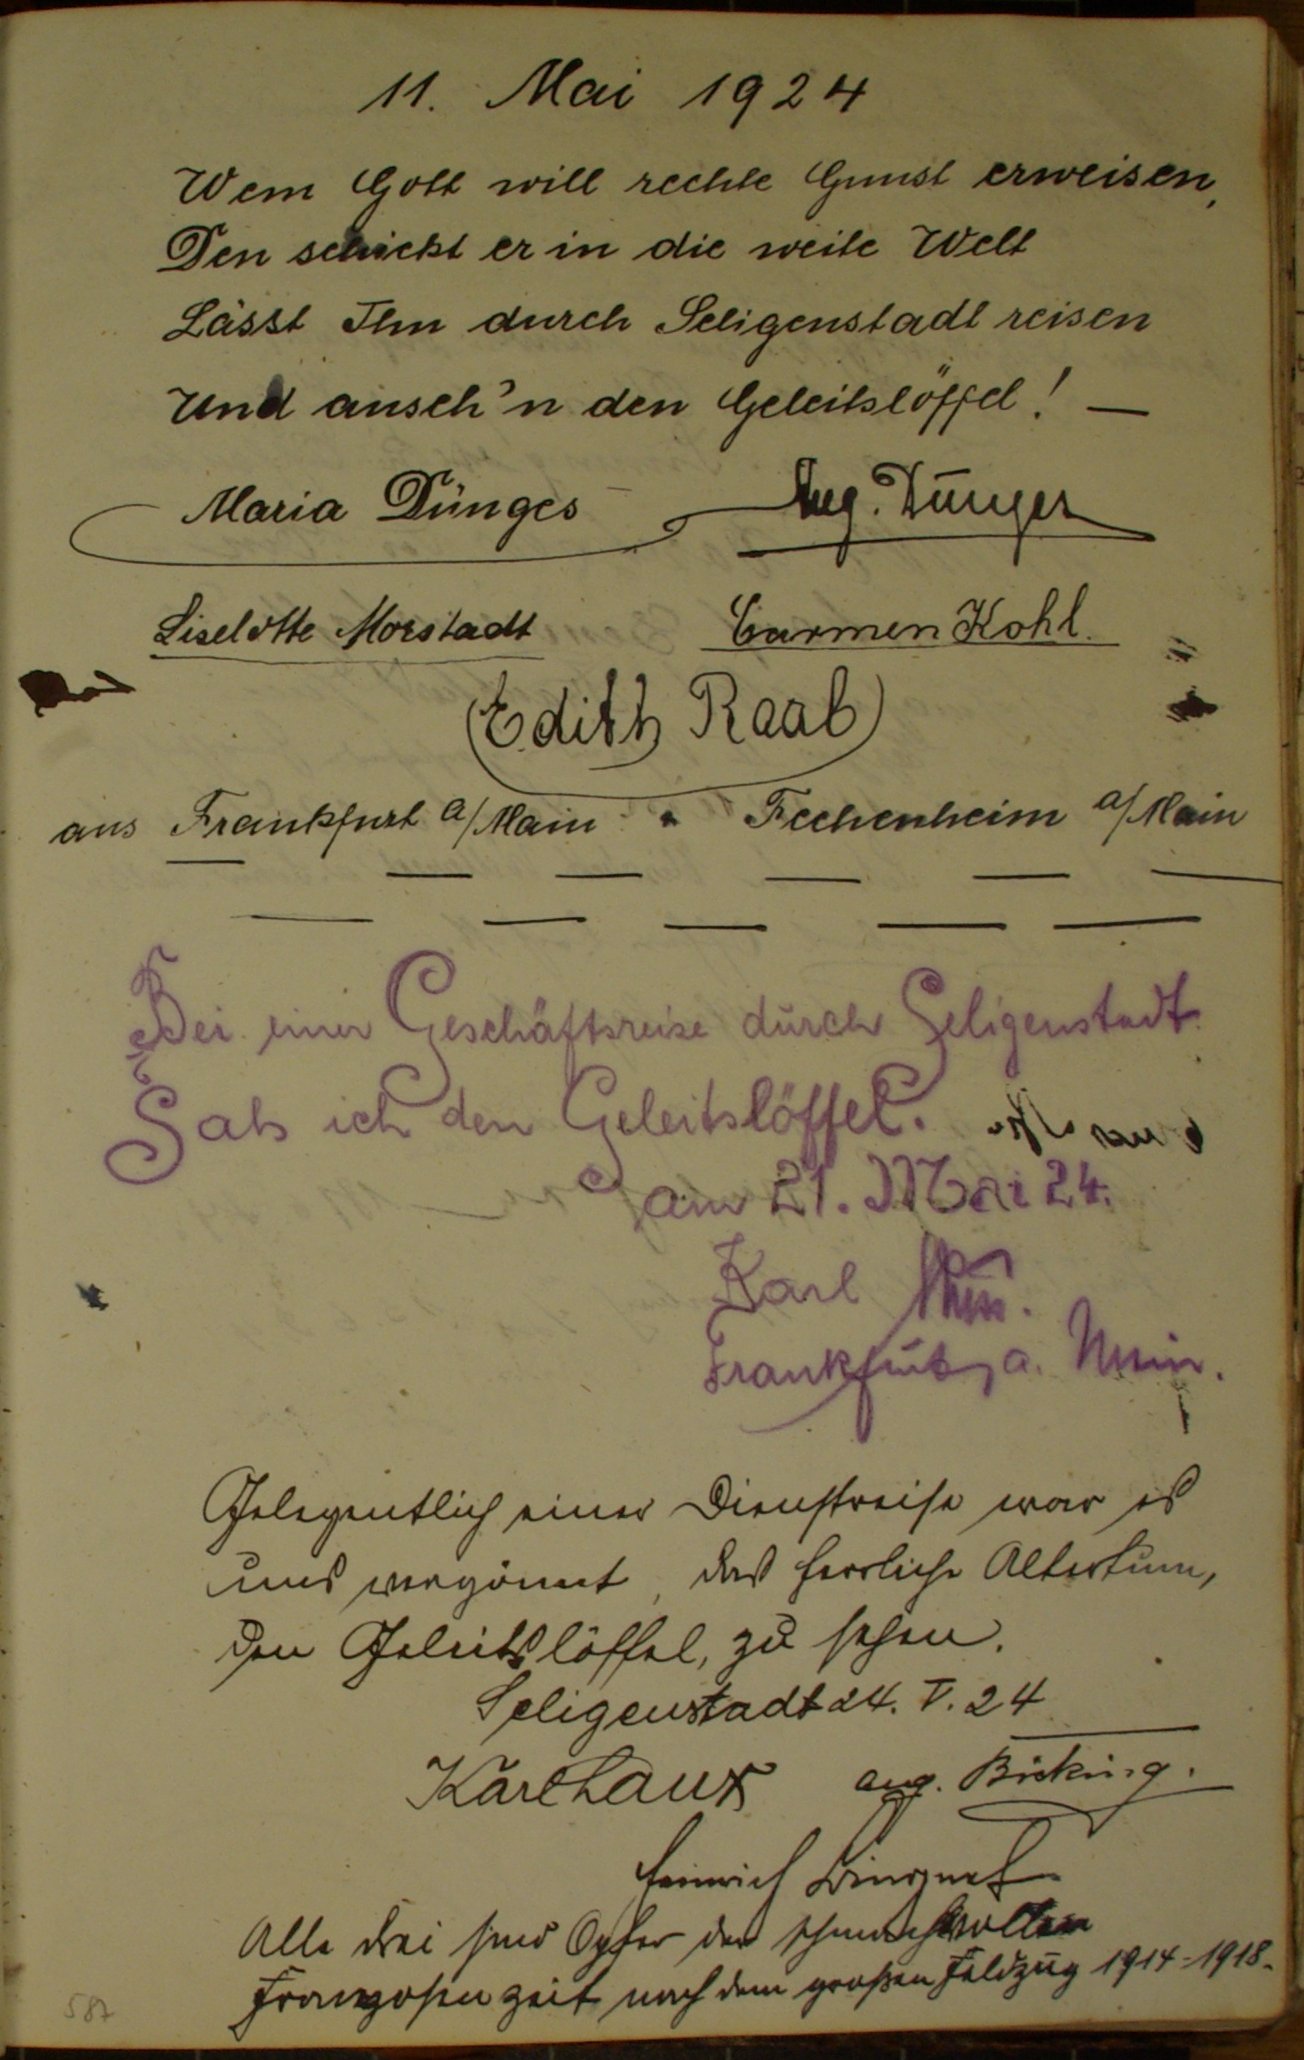 11. Mai 1924
Wem Gott will rechte Gunst erweisen,
Den schickt er in die weite Welt
Lässt Ihn durch Seligenstadt reisen
Und anseh'n den Geleitslöffel! —
Maria Dünges Aug. Dünges
Liselotte Morstadt Carmen Kohl.
(Edith Raab)
aus Frankfurt a/Main Fechenheim a/Main
Bei einer Geschäftsreise durch Seligenstadt
Sah ich den Geleitslöffel.
am 21. Mai 24.
Karl
Frankfurt, a. Main.
Gelegentlich einer Dienstreise war es
uns vergönnt, das herrliche Altertum,
den Geleitslöffel, zu sehen.
Seligenstadt 24. V. 24
Karl Laux Aug. Bicking.
Heinrich
Alle drei sind Opfer der schmachvollen
Franzosenzeit nach dem großen Feldzug 1914-1918.
587